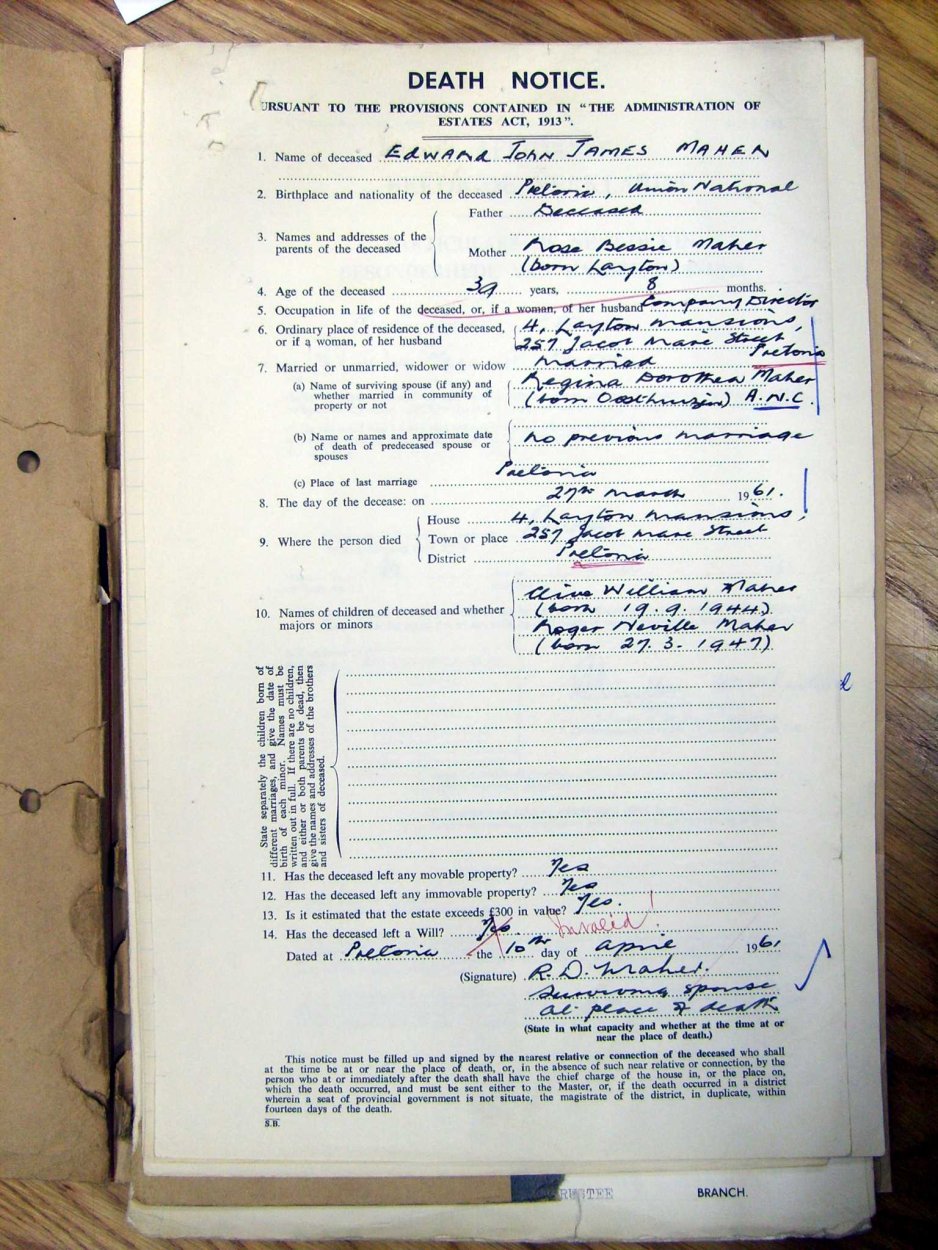 DEATH NOTICE.
URSUANT TO THE PROVISIONS CONTAINED IN "THE ADMINISTRATION OF
ESTATES ACT, 1913".
1. Name of deceased EDWARD JOHN JAMES MAHER
2. Birthplace and nationality of the deceased Pretoria, Union National
3. Names and addresses of the parents of the deceased
Father Deceased
Mother Rose Bessie Maher
(born Layton)
4. Age of the deceased 39 years, 8 months.
5. Occupation in life of the deceased, or, if a woman, of her husband Company Director
6. Ordinary place of residence of the deceased, or if a woman, of her husband
4, Layton Mansions,
257 Jacob Mare Street
Pretoria
7. Married or unmarried, widower or widow married
(a) Name of surviving spouse (if any) and whether married in community of property or not
Regina Dorothea Maher
(born Oosthuizen) A.N.C.
(b) Name or names and approximate date of death of predeceased spouse or spouses
no previous marriage
(c) Place of last marriage Pretoria
8. The day of the decease: on 27th March 1961.
9. Where the person died
House 4, Layton Mansions,
Town or place 257 Jacob Mare Street
District Pretoria
10. Names of children of deceased and whether majors or minors
Clive William Maher
(born 19.9.1944)
Roger Neville Maher
(born 27.3.1947)
State separately the children born of
different marriages, and give the date of
birth of each minor. Names must be
written out in full. If there are no children,
and either or both parents be dead, then
give the names and addresses of the brothers
and sisters of deceased.
11. Has the deceased left any movable property? Yes
12. Has the deceased left any immovable property? Yes
13. Is it estimated that the estate exceeds £300 in value? Yes.
14. Has the deceased left a Will? Yes. Invalid!
Dated at Pretoria the 10th day of April 1961
(Signature) R.D. Maher.
Surviving spouse
at place of death
(State in what capacity and whether at the time at or
near the place of death.)
This notice must be filled up and signed by the nearest relative or connection of the deceased who shall
at the time be at or near the place of death, or, in the absence of such near relative or connection, by the
person who at or immediately after the death shall have the chief charge of the house in, or the place on,
which the death occurred, and must be sent either to the Master, or, if the death occurred in a district
wherein a seat of provincial government is not situate, the magistrate of the district, in duplicate, within
fourteen days of the death.
S.B.
TRUSTEE BRANCH.